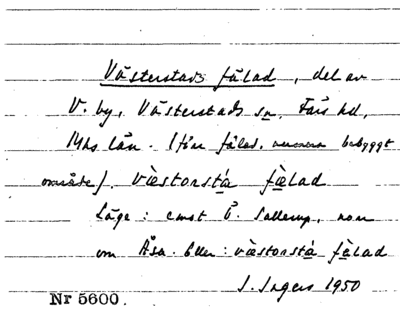 Västerstads fälad, del av
V. by, Västerstads sn, Färs hd,
Mhs län. (förr fälad, numera bebyggt
område). væ̀stɔrstá fæ̀lad
Läge: emot Ö. Sallerup, norr
om Åsa. Eller: væ̀stɔrstá fæ̀lad
I. Ingers 1950
Nr 5600.